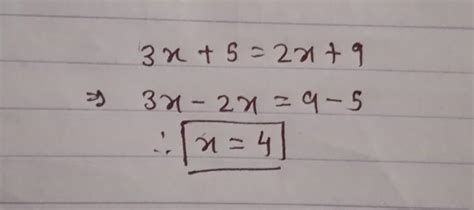 3x + 5 = 2x + 9
⇒ 3x - 2x = 9 - 5
∴ x = 4